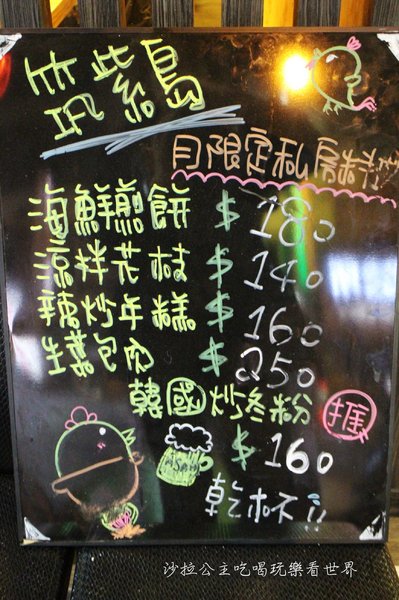 筑紫島
月限定私房料理
海鮮煎餅 $180
涼拌花枝 $140
辣炒年糕 $160
生菜包肉 $250
韓國炒冬粉 推
$160
乾杯!!
沙拉公主吃喝玩樂看世界